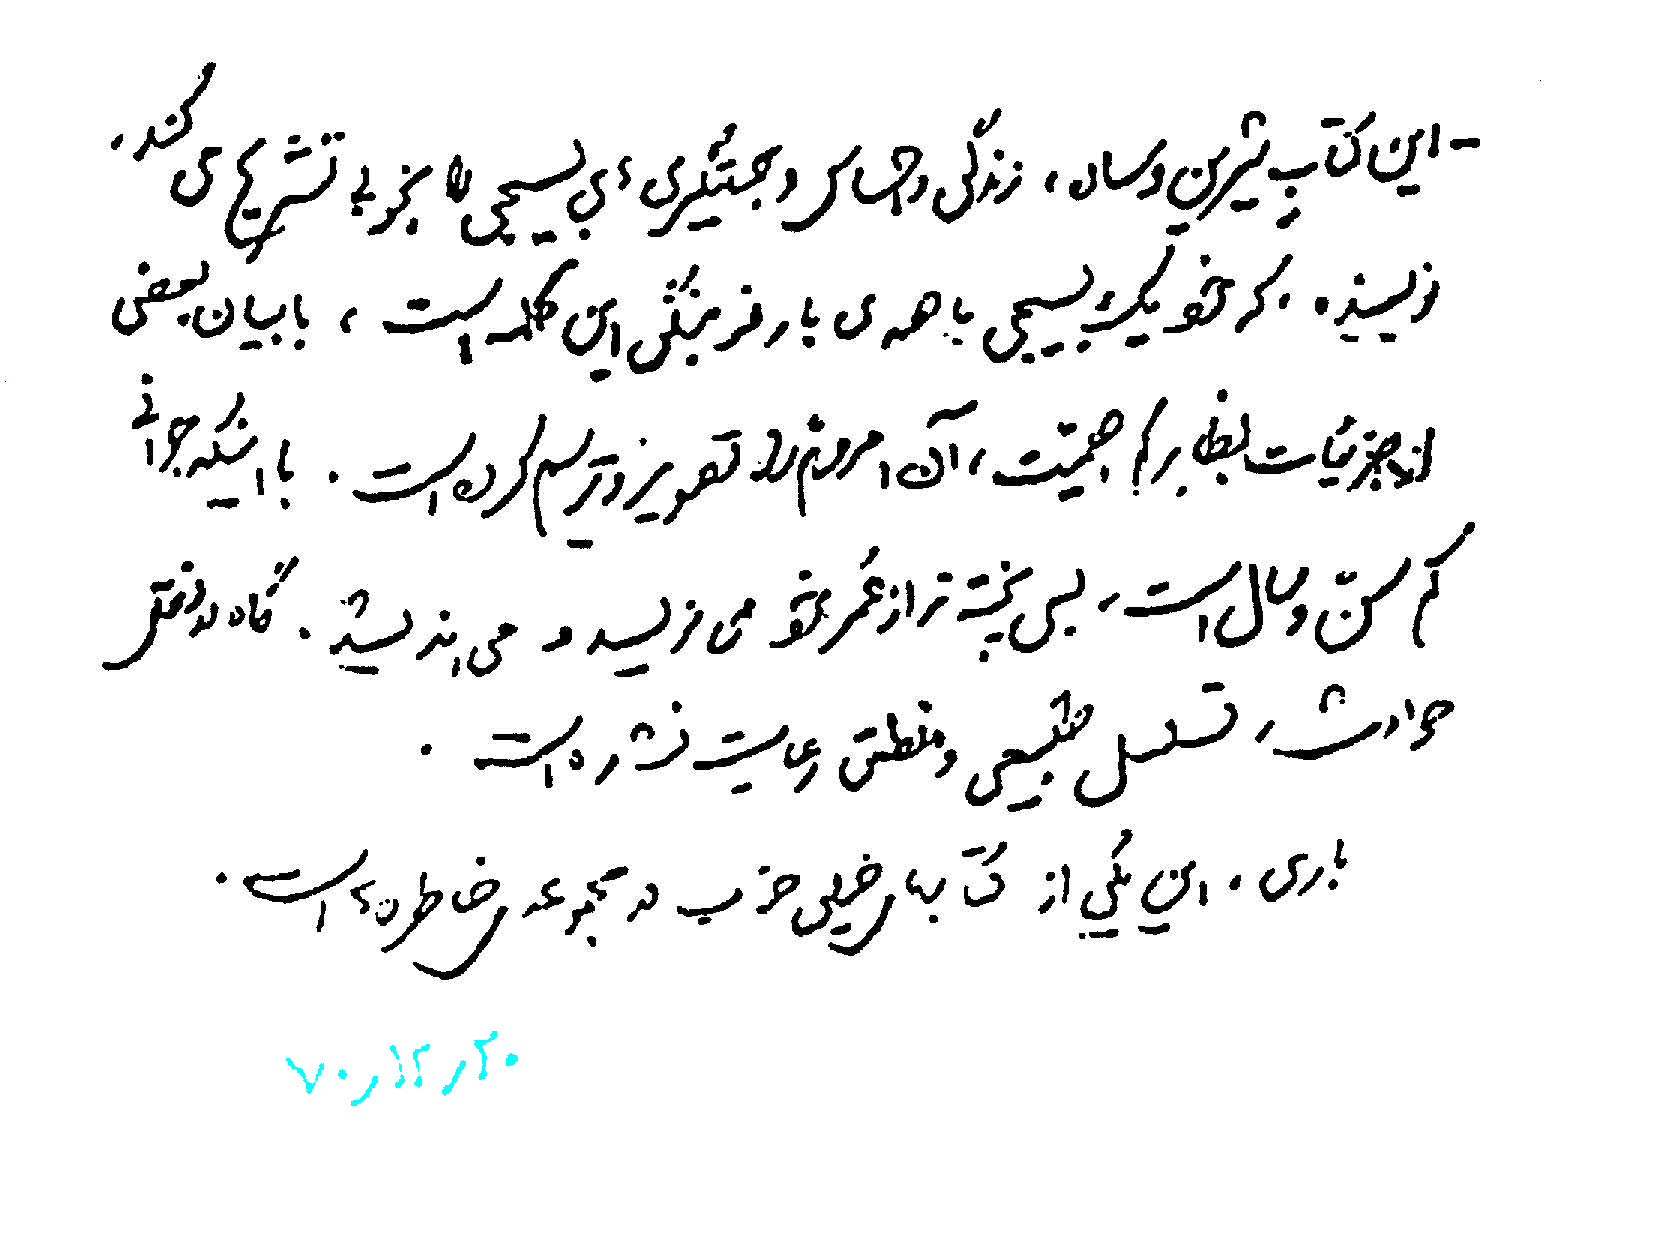 - این کتابِ شیرین و ساده، زندگی و احساس و جهتگیریِ بسیجی را بخوبی تشریح می کند.
نویسنده که خود یک بسیجی با همه ی بار فرهنگی این کلمه است، با بیان بعضی
از جزئیات بظاهر کم اهمیّت، آن امر مهم را تصویر و ترسیم کرده است. با اینکه جوانی
کم سنّ و سال است، بسی پخته تر از عمر خود می نویسد و می اندیشد. گاه در نقل
حوادث، تسلسل طبیعی و منطقی رعایت نشده است.
باری. این یکی از کتابهای خیلی خوب در مجموعه ی خاطره ها است.
۷۰٫۱۲٫۲۰